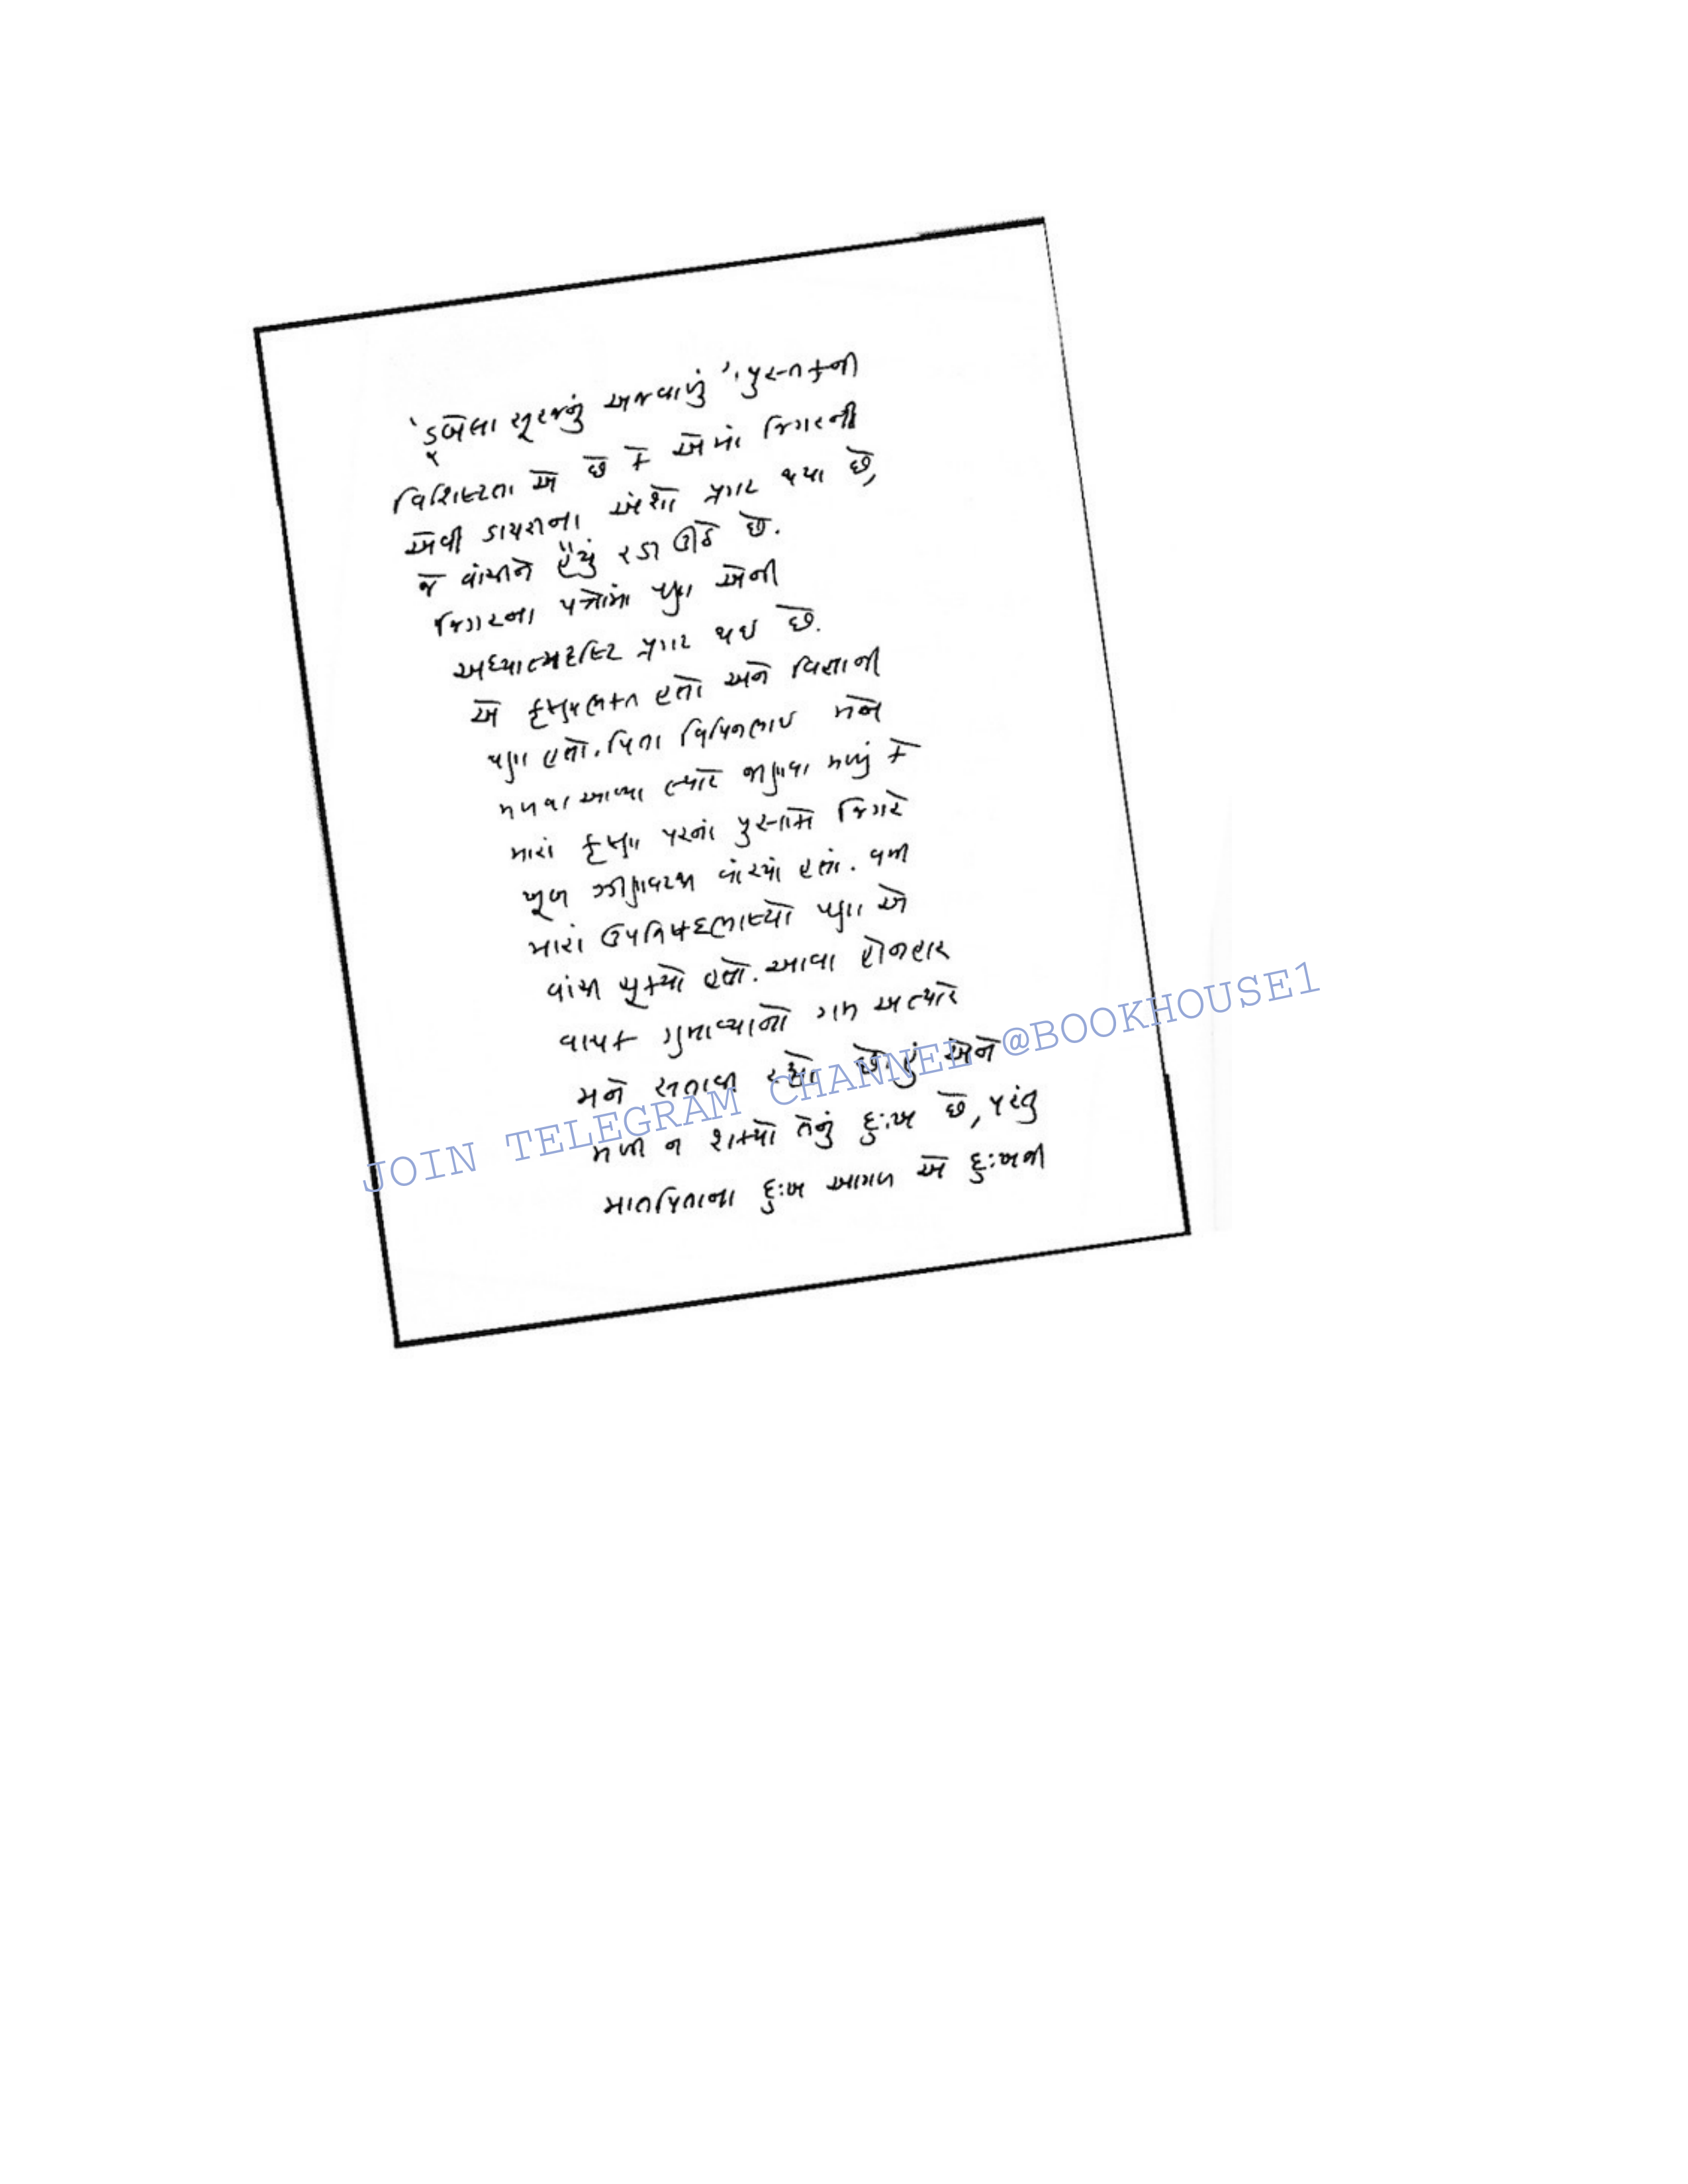 'ડૂબેલા સૂરજનું અજવાળું', પુસ્તકની
વિશિષ્ટતા એ છે કે એમાં જિગરની
એવી ડાયરીના અંશો પ્રગટ થયા છે,
જે વાંચીને હૈયું રડી ઊઠે છે.
જિગરના પત્રોમાં પણ એની
અધ્યાત્મદૃષ્ટિ પ્રગટ થઇ છે.
એ કૃષ્ણભક્ત હતો અને વિજ્ઞાની
પણ હતો. પિતા વિપિનભાઇ મને
મળવા આવ્યા ત્યારે જાણવા મળ્યું કે
મારાં કૃષ્ણ પરનાં પુસ્તકો જિગરે
ખૂબ ઝીણવટથી વાંચ્યાં હતાં. વળી
મારાં ઉપનિષદભાષ્યો પણ એ
વાંચી ચૂક્યો હતો. આવા હોનહાર
વાચક ગુમાવ્યાનો ગમ અત્યારે
મને સતાવી રહ્યો છે. હું એને
મળી ન શક્યો તેનું દુ:ખ છે, પરંતુ
માતાપિતાના દુ:ખ આગળ એ દુ:ખની
JOIN TELEGRAM CHANNEL @BOOKHOUSE1